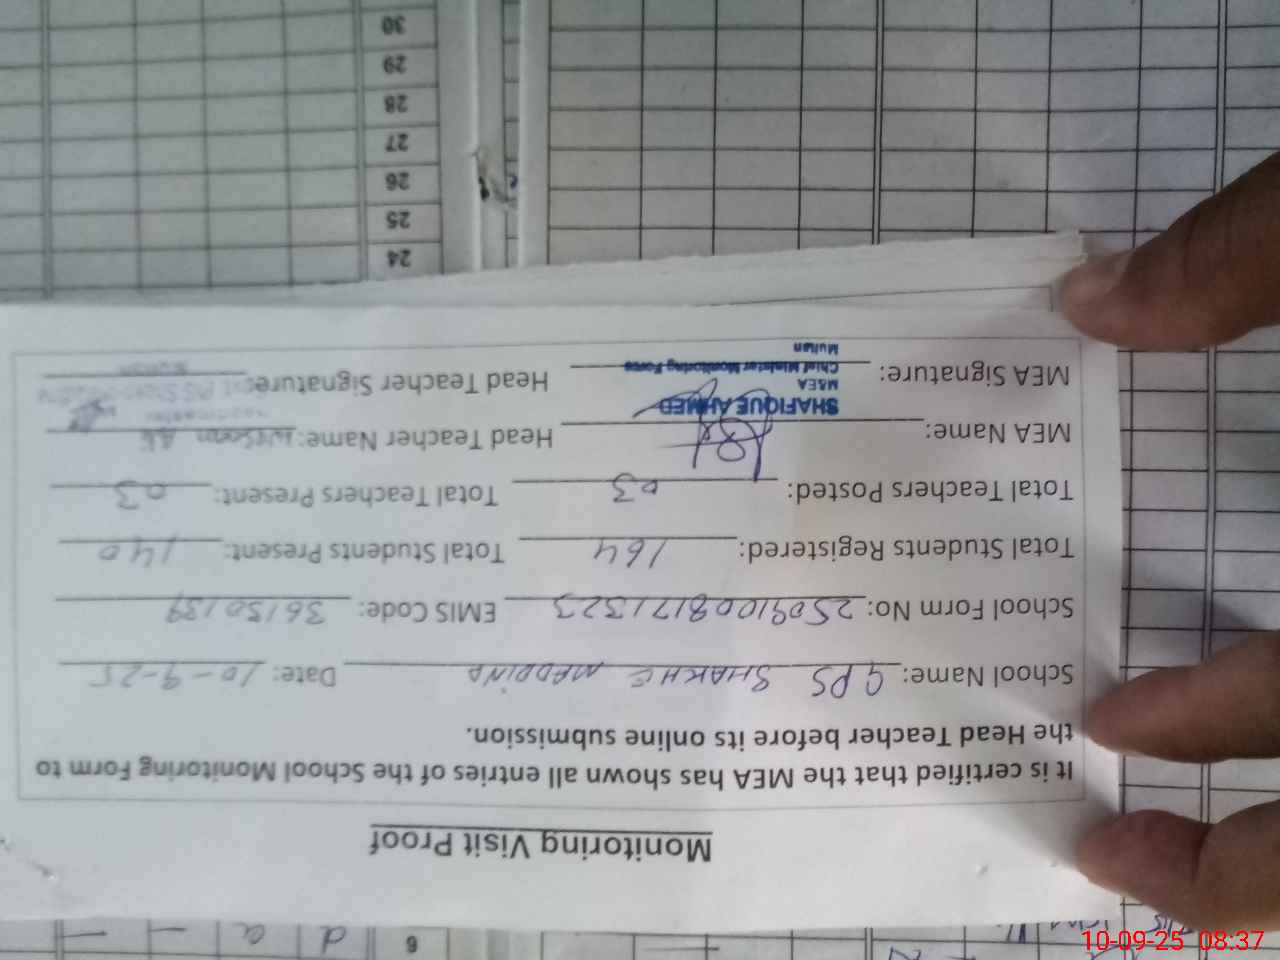 Monitoring Visit Proof
It is certified that the MEA has shown all entries of the School Monitoring Form to
the Head Teacher before its online submission.
School Name: GPS SHAKHE MADDINA Date: 10-9-25
School Form No: 25091008171323 EMIS Code: 36150139
Total Students Registered: 164 Total Students Present: 140
Total Teachers Posted: 03 Total Teachers Present: 03
MEA Name: Head Teacher Name:
SHAFIQUE AHMED
M&EA
MEA Signature: Head Teacher Signature:
Chief Minister Monitoring Force
Multan
24
25
26
27
28
29
30
6
d a - -
10-09-25 08:37